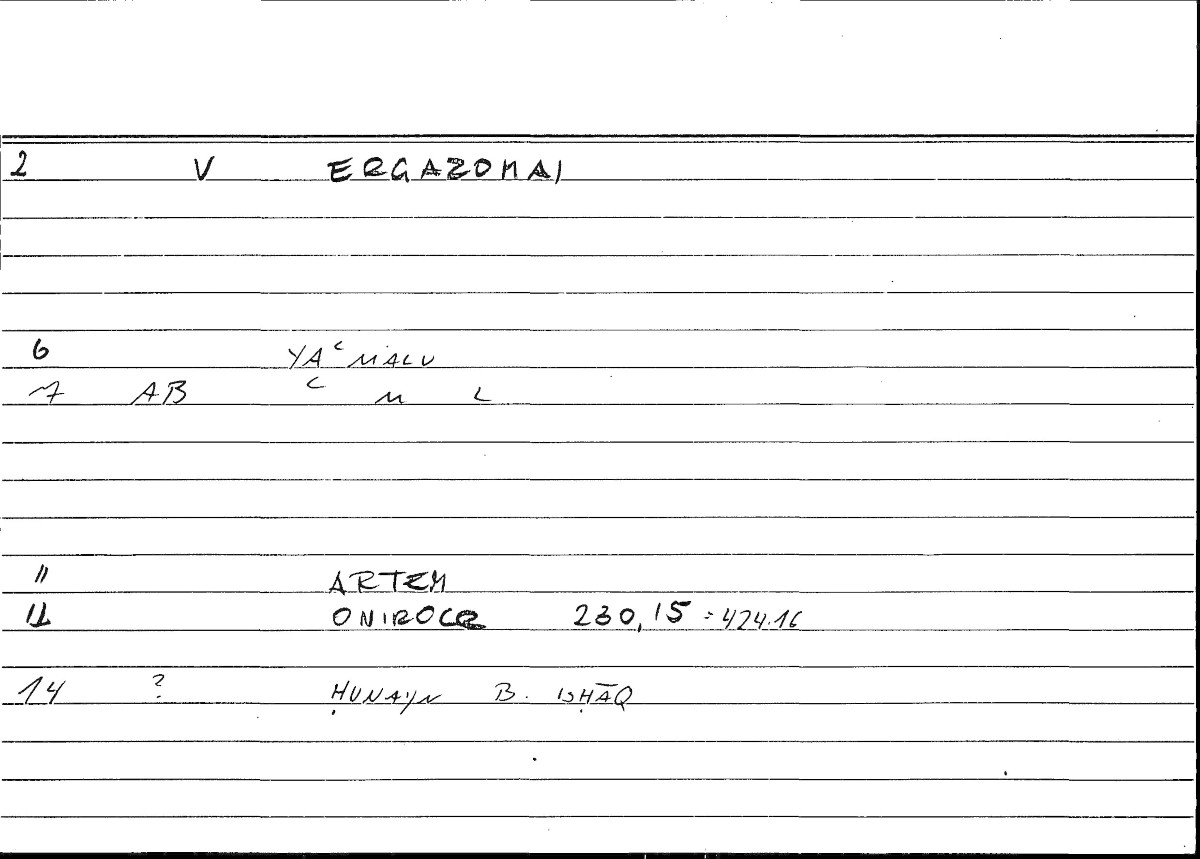 2 V ERGAZOMAI
6 YAʿMALU
7 AB ʿ M L
11 ARTEM
12 ONIROCR 230,15 = 424.16
14 ? ḤUNAYN B. ISḤĀQ